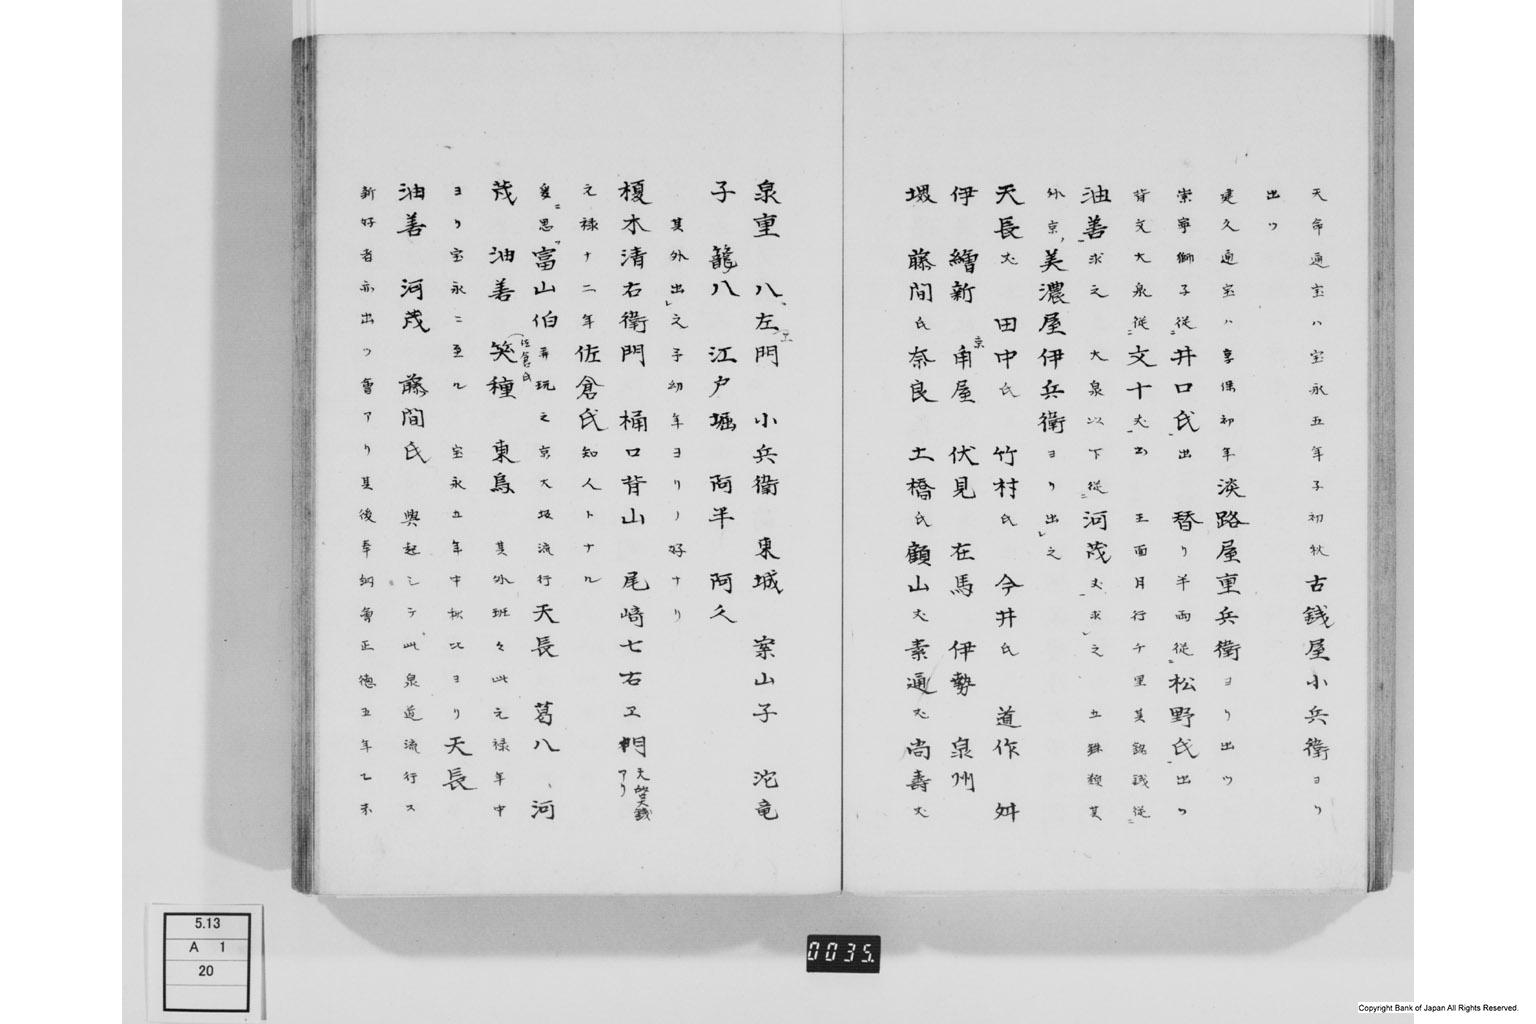 天命通宝ハ宝永五年子初秋古銭屋小兵衛ヨリ
出ツ
建久通宝ハ享保初年淡路屋重兵衛ヨリ出ツ
崇寧獅子従井口氏出 替り半両従松野氏出ツ
背文大泉従文十丈出 王面月行千里其銘銭従
油善求之 大泉以下従河茂丈求之 五銖類其
外京美濃屋伊兵衛ヨリ出之
天長丈 田中氏 竹村氏 今井氏 道作 舛
伊 繪新 京甬屋 伏見 在馬 伊勢 泉州
堺 藤間氏 奈良 土橋氏 顧山丈 素通丈 尚壽丈
泉重 八左エ門 小兵衛 東城 案山子 沱竜
子 籠八 江户堀 阿半 阿久
其外出之子幼年ヨリノ好ナリ
榎木清右衛門 桶口背山 尾崎七右ヱ門 天啓大銭アリ
元禄十二年佐倉氏知人トナル
爰思富山伯弄玩之京大坂流行天長 葛八、河
茂 油善 笑種(佐倉氏 東鳥 其外班々此元禄年中
ヨリ宝永ニ至ル 宝永五年中秋比ヨリ天長
油善 河茂 藤間氏 興起シテ此泉道流行ス
新好者亦出ツ會アリ其後奉納會正徳五年乙未
5.13
A 1
20
0035.
Copyright Bank of Japan All Rights Reserved.